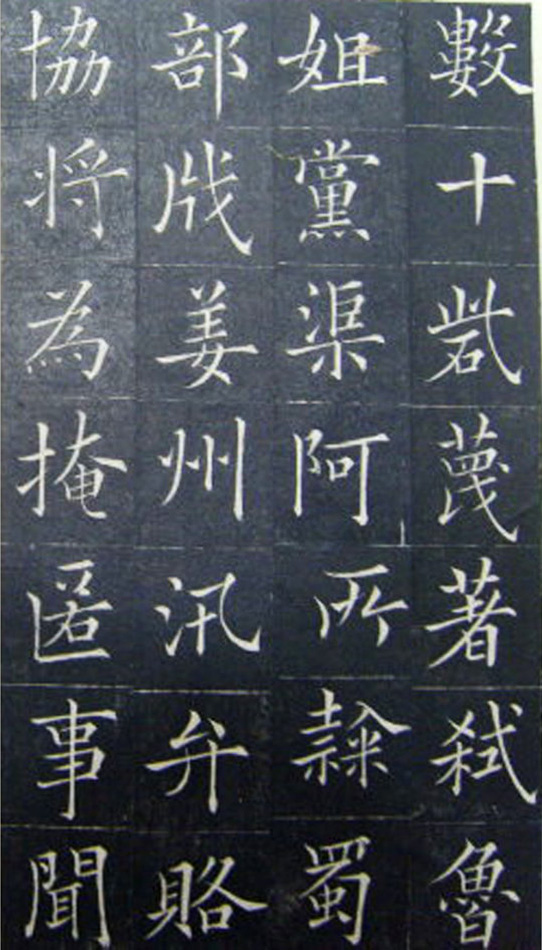 數十砦蔑著弑魯
姐黨渠阿所隸蜀
部戕姜州汛弁賂
協将為掩匿事聞